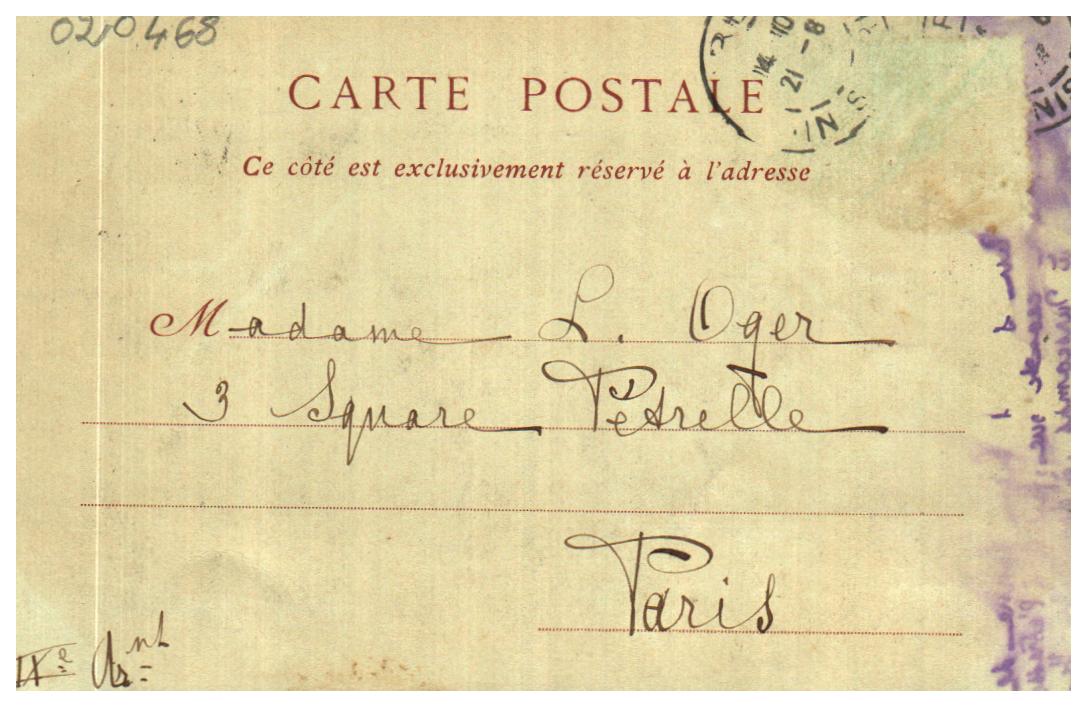 020468
CARTE POSTALE
Ce côté est exclusivement réservé à l'adresse
14 10
21 - 8
Madame L. Oger
3 Square Pétrelle
Paris
IXe Arnt